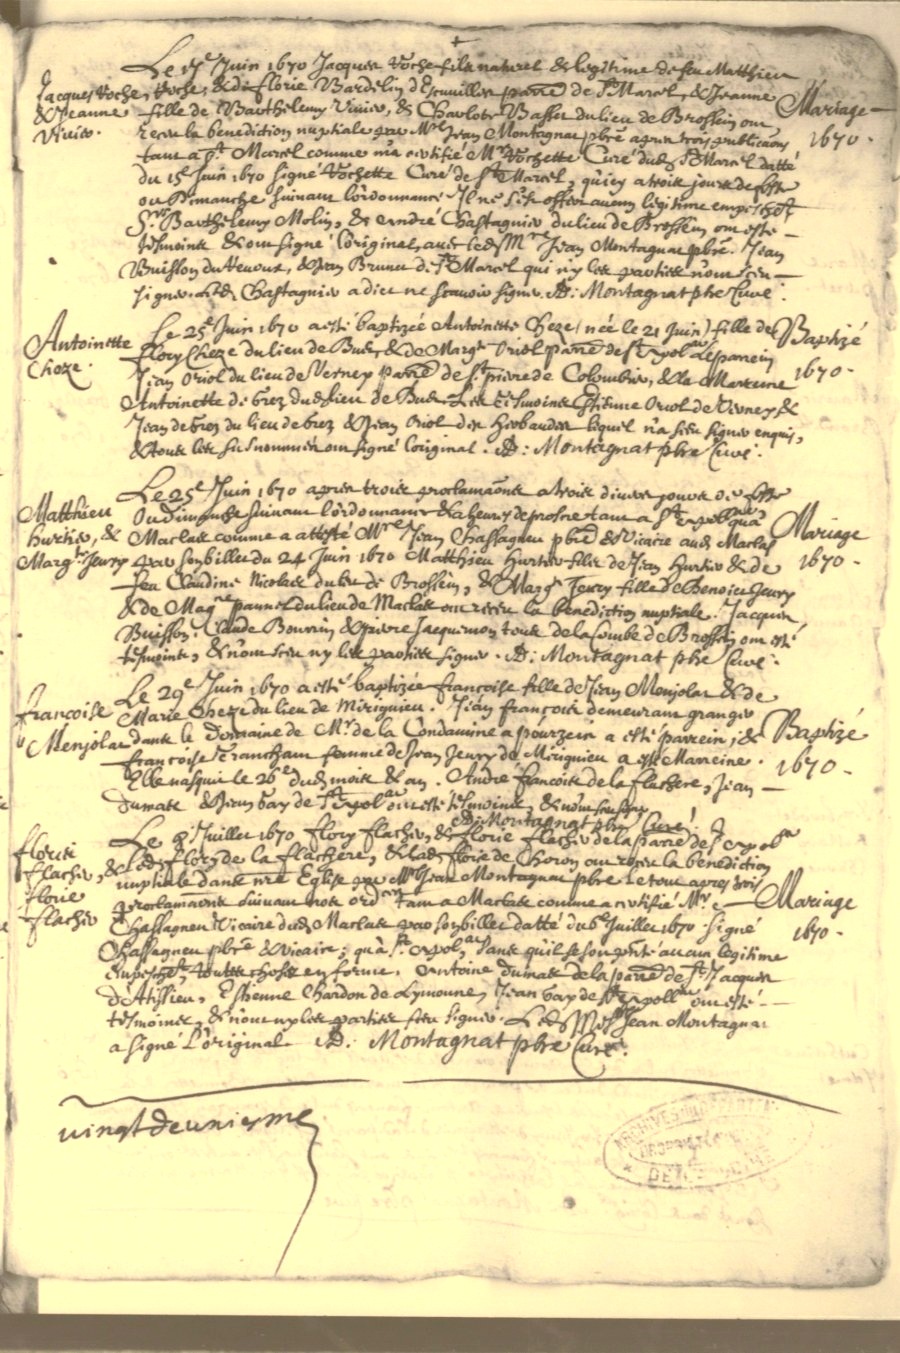 Le 17e Juin 1670 Jacques Voche fils naturel & legitime de feu Matthieu
Jacques Voche, Voche, & de florie Bardelin d'Escuvillier parre de St Marcel, & Jeanne
& Jeanne fille de Barthelemy Vivier, & Charlote Basset du lieu de Brossein ont
Mariage
Vivier.
receu la benediction nuptiale par Mre Jean Montagnat pbre apres trois publicaons
1670.
tant a St Marcel comme m'a certifié Mr Vochette Curé dud St Marcel datté
du 15e Juin 1670 signé Vochette Curé de St Marcel, qu'icy a trois jours de feste
ou Dimanche suivant l'ordonnance Il ne s'est offert aucun legitime empeschet
Srs Barthelemy Molin, & André Chastagnier du lieu de Brossein ont esté
tesmoins & ont signé l'original, avec led Mre Jean Montagnat pbre. Jean
Buisson du Venoux, & Jean Brunel de St Marcel qui ny les parties n'ont sceu
signer. led Chastagnier a dict ne scavoir signer. AD: Montagnat pbre Curé.
Antoinette
Cheze.
Le 25e Juin 1670 a esté baptizée Antoinette Cheze (née le 21 Juin) fille de
Baptizé
flory Cheze du lieu de Buet, & de Margte Oriol parre de St Apolar le parrein
1670.
Jean Oriol du lieu de Verney parre de St pierre de Colombier, & la Marreine
Antoinette de Grez dud lieu de Buet. Les Tesmoins Estienne Oriol de Verney, &
Jean de Grez du lieu de Grez & Jean Oriol des Herbaudes lequel n'a sceu signer enquis,
& tous les susnommés ont signé l'original. AD: Montagnat pbre Curé.
Matthieu
hurtier, &
Margte Jeury
Le 25e Juin 1670 apres trois proclamaons a trois divers jours de feste
ou dimanche suivant l'ordonnance & a heures de prosne tant a St Apolar qu'a
Mariage
Maclas comme a attesté Mre Jean Chassagneu pbre & Vicaire aud Maclas
1670.
par son billet du 24 Juin 1670 Matthieu Hurtier fils de Jean Hurtier & de
feu Claudine Nicolas du lieu de Brossein, & Margte Jeury fille de Benoict Jeury
& de Magne pannel du lieu de Maclas ont receu la benediction nuptiale. Jacques
Buisson, Claude Bouvrin & pierre Jacquemon tous de la Combe de Brossein ont esté
tesmoins, & n'ont sceu ny les parties signer. AD: Montagnat pbre Curé.
francoise
Menjolat
Le 29e Juin 1670 a esté baptizée francoise fille de Jean Monjolat & de
Marie Cheze du lieu de Mirignieu. Jean francois demeurant granger
dans le domaine de Mr de la Condamine a pourzein a esté parrein, &
Baptizé
francoise Tranchant femme de Jean Jeury de Mirignieu a esté Marreine.
1670.
Elle nasquit le 26e dud mois & an. André francois de la flachere, Jean
Dumas & Jean Gay de St Apolar ont esté tesmoins, & n'ont sceu signer
AD: Montagnat pbre Curé.
floris
flachier, &
florie
flachier
Le 8e Juillet 1670 flory flachier, & florie flachier de la parre de St Apolar
Led flory de la flachere, & lad florie de Choron ont receu la benediction
nuptiale dans nre Eglise par Mre Jean Montagnat pbre le tout apres trois
proclamaons suivant nos ordces tant a Maclas comme a certifié Mre
Mariage
Chassagneu Vicaire dud Maclas par son billet datté du 6e Juillet 1670 signé
1670.
Chassagneu pbre & vicaire; qu'a St Apolar, sans qu'il se soit ptnté aucun legitime
empeschet, toutes choses en forme. Antoine dumas de la parre de St Jacques
d'Atissieu, Estienne Chardon de Lymoune, Jean Gay de St Apollar ont esté
tesmoins, & n'ont ny les parties sceu signer. Led Mre Jean Montagnat
a signé L'original. AD: Montagnat pbre Curé.
vingt deuxiesme
ARCHIVES DEPARTEMENTALES
PROPRIETE
DE L'ARDECHE